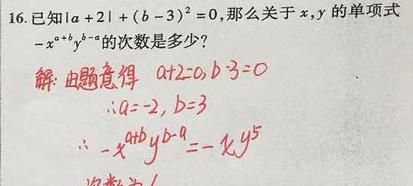 16.已知|a+2|+(b-3)²=0,那么关于x,y的单项式
-x^{a+b}y^{b-a}的次数是多少?
解:由题意得 a+2=0,b-3=0
∴a=-2,b=3
∴ -x^{a+b}y^{b-a}=-xy⁵
次数为